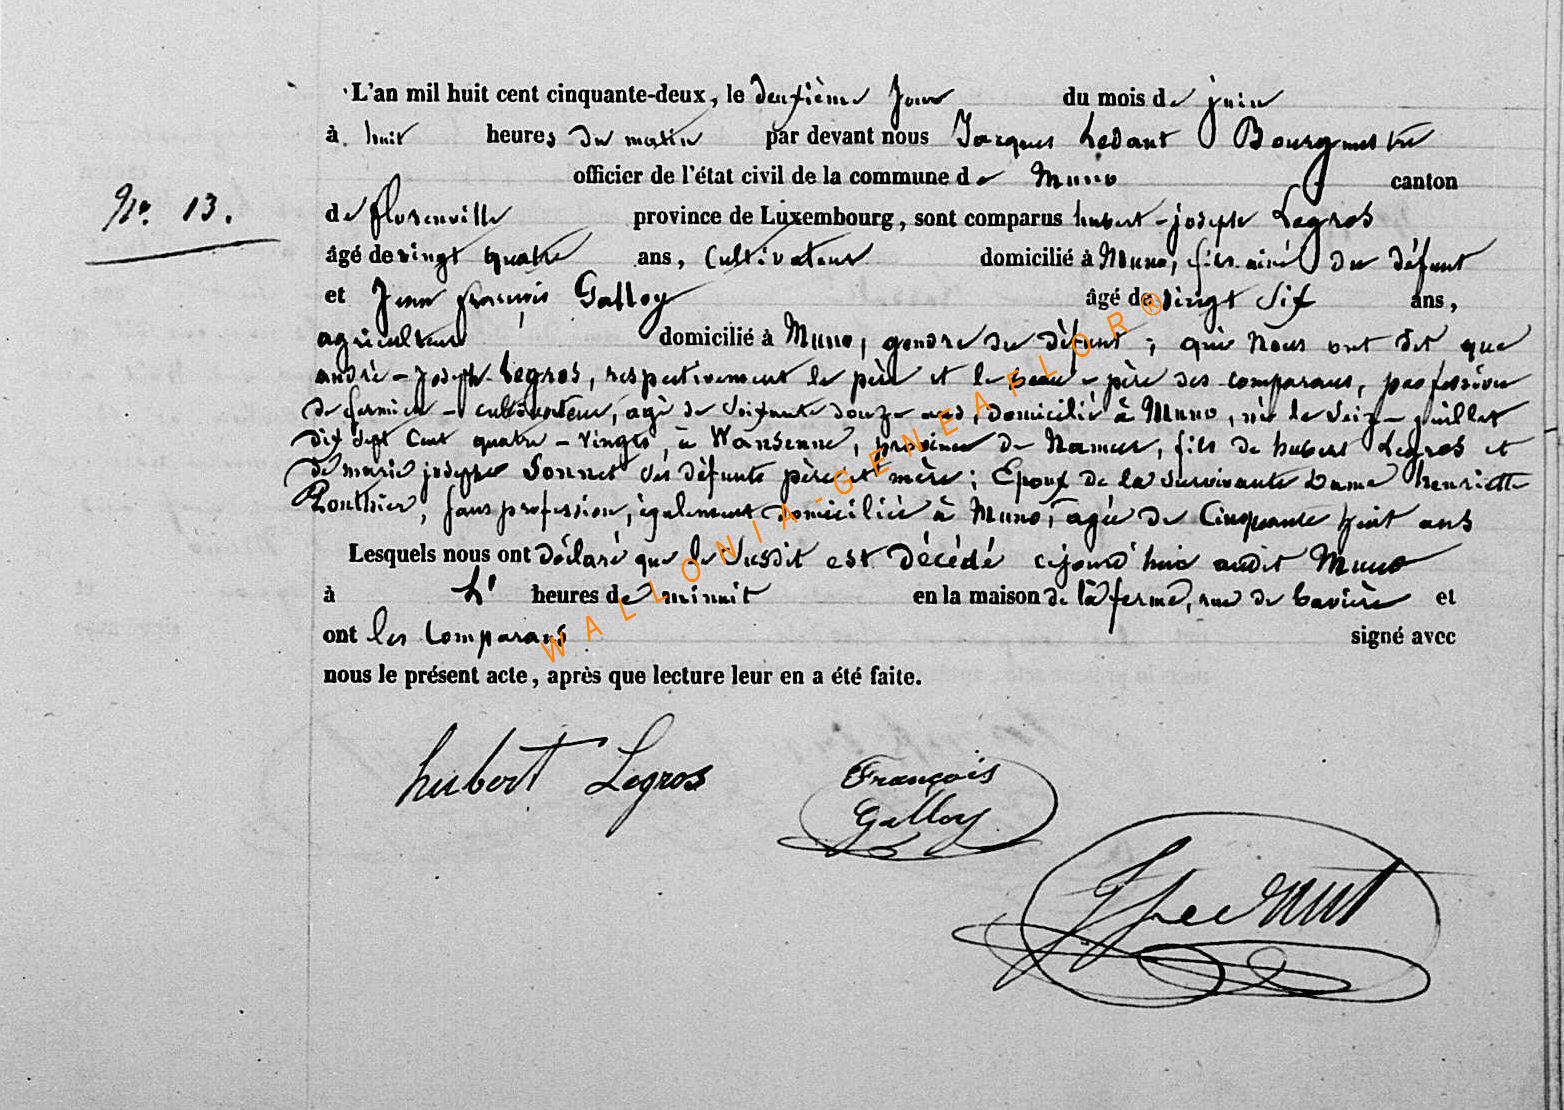 L'an mil huit cent cinquante-deux, le deuxième jour du mois de juin
à huit heures du matin par devant nous Jacques Ledant Bourgmestre
officier de l'état civil de la commune de Muno canton
N° 13.
de florenville province de Luxembourg, sont comparus hubert-joseph Legros
âgé de vingt quatre ans, Cultivateur domicilié à Muno, fils ainé du défunt
et Jean françois Galloy âgé de vingt six ans,
agriculteur domicilié à Muno, gendre du défunt ; qui nous ont dit que
andré-Joseph Legros, respectivement le père et le beau-père des comparans, profession
de fermier-cultivateur, agé de soixante douze ans, domicilié à Muno, né le seize juillet
dix sept cent quatre-vingts, à Wansenne, province de Namur, fils de hubert Legros et
de marie josephe Sonnet ses défunts père et mère ; Epoux de la survivante Dame henriette
Ponthier, sans profession, également domiciliée à Muno, agée de Cinquante huit ans
Lesquels nous ont déclaré que le susdit est décédé cejourd'hui audit Muno
à L' heures de minuit en la maison de la ferme, rue de bavière et
ont les Comparans signé avec
nous le présent acte, après que lecture leur en a été faite.
hubert Legros
François
Galloy
WALLONIA-GENEAFLOR®